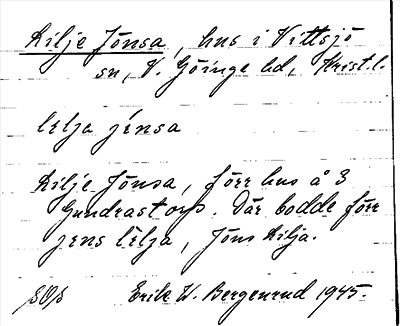 Lilje Jönsa, hus i Vittsjö
sn, V. Göinge hd, Krist.l.
lilja jénsa
Lilje Jönsa, förr hus å 3
Gundrastorp. Där bodde förr
jens lilja, Jöns Lilja.
Erik W. Bergenrud 1945.